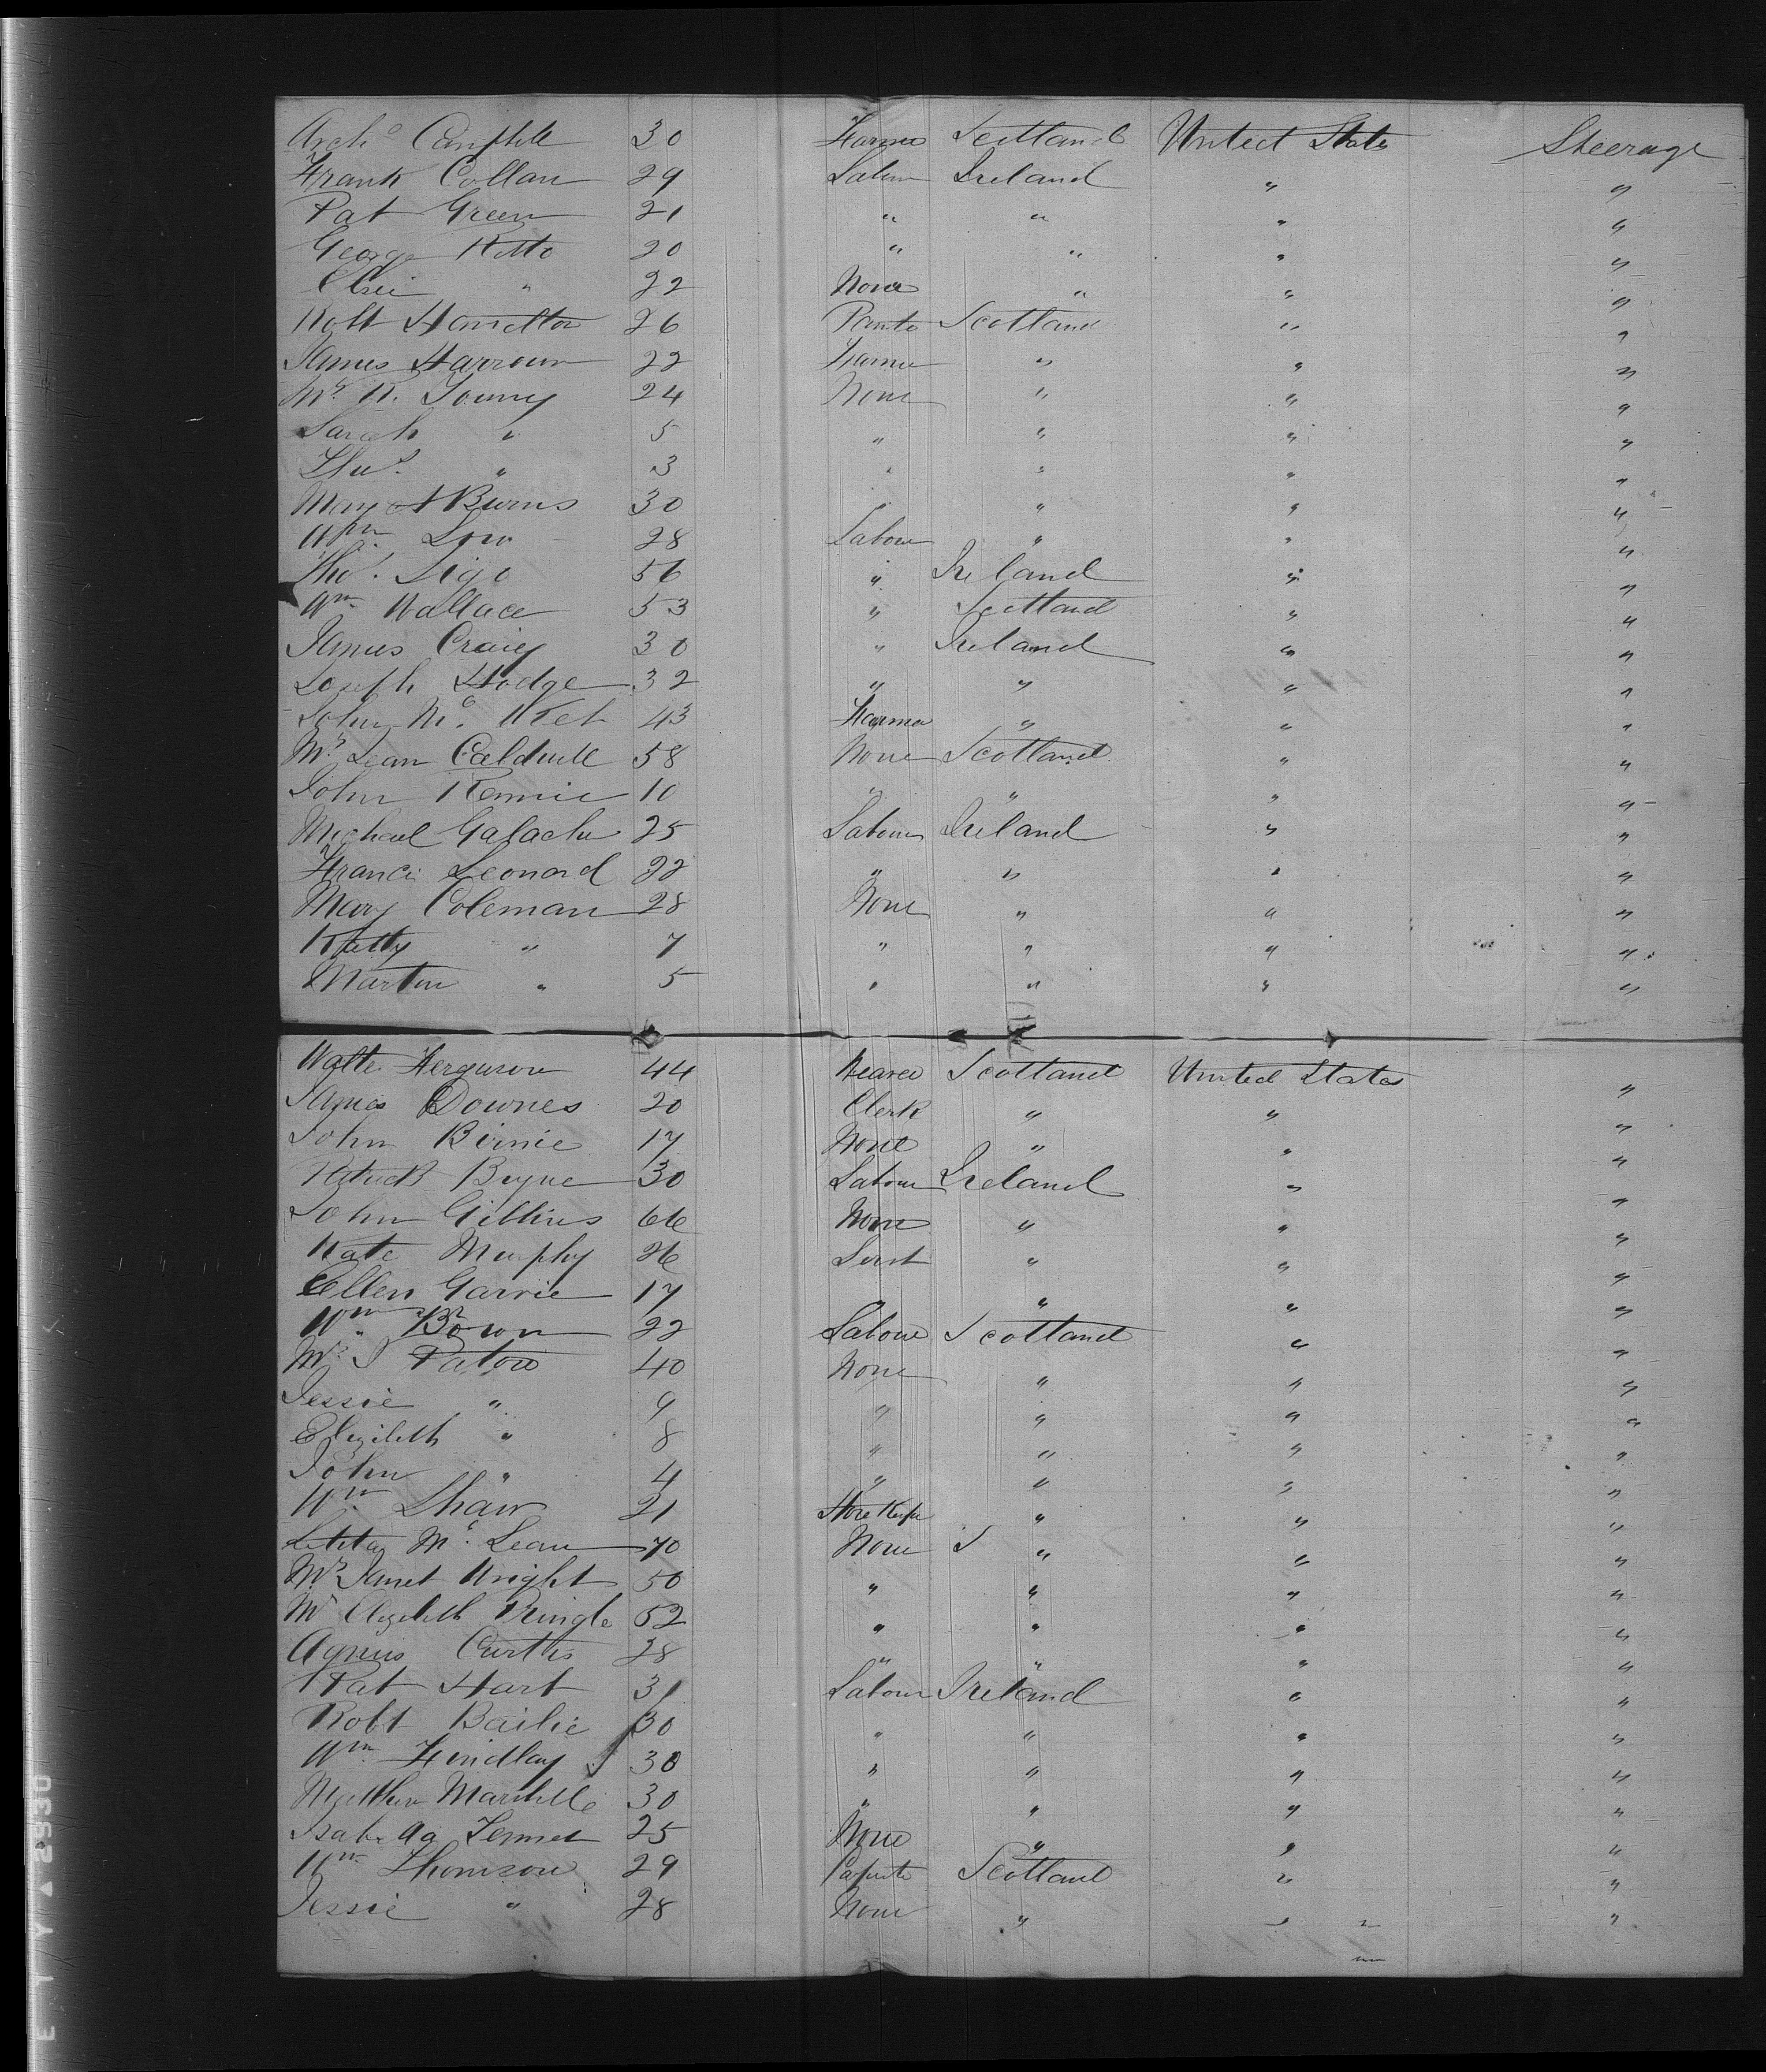 Archd Campbell 30 Farmer Scotland United States Steerage
Frank Collan 29 Labour Ireland " "
Pat Green 21 " " " "
George Kitto 20 " " " "
Elsie " 22 None " " "
Robt Hamilton 26 Painter Scotland " "
James Harroun 22 Farmer " " "
Mrs R. Young 24 None " " "
Sarah " 5 " " " "
" 3 " " " "
Mary A Burns 30 " " " "
Wm. Low 28 Labour " " "
Thos. Sigo 56 " Ireland " "
Wm Wallace 53 " Scotland " "
James Craig 30 " Ireland " "
Joseph Hodge 32 " " " "
John Mc 43 Farmer " " "
Mrs Jean Caldwell 58 None Scotland " "
John Rennie 10 " " " "
Michael Galacher 25 Labour Ireland " "
Francis Leonard 22 " " " "
Mary Coleman 28 None " " "
Katty " 7 " " " "
Martin " 5 " " " "
Walter Ferguson 44 Weaver Scotland United States "
James Downes 20 Clerk " " "
John Birnie 17 None " " "
Patrick Boyne 30 Labour Ireland " "
John Gibbins 66 None " " "
Kate Murphy 26 Servt " " "
Ellen Garvie 17 " " " "
Wm Brown 22 Labour Scotland " "
Mrs J Paton 40 None " " "
Jessie " 9 " " " "
Elizibeth " 8 " " " "
John " 4 " " " "
Wm Shaw 21 Store Keeper " " "
Letitia Mc Lean 70 None S " " "
Mrs Janet Wright 50 " " " "
Mrs Elizibeth Pringle 52 " " " "
Agnes Curtis 28 " " " "
Pat Hart 31 Labour Ireland " "
Robt Bailie 30 " " " "
Wm Findlay S 30 " " " "
Matthew 30 " " " "
Isabella 25 None " " "
Wm Thomson 29 Carpenter Scotland " "
Jessie " 28 None " " "